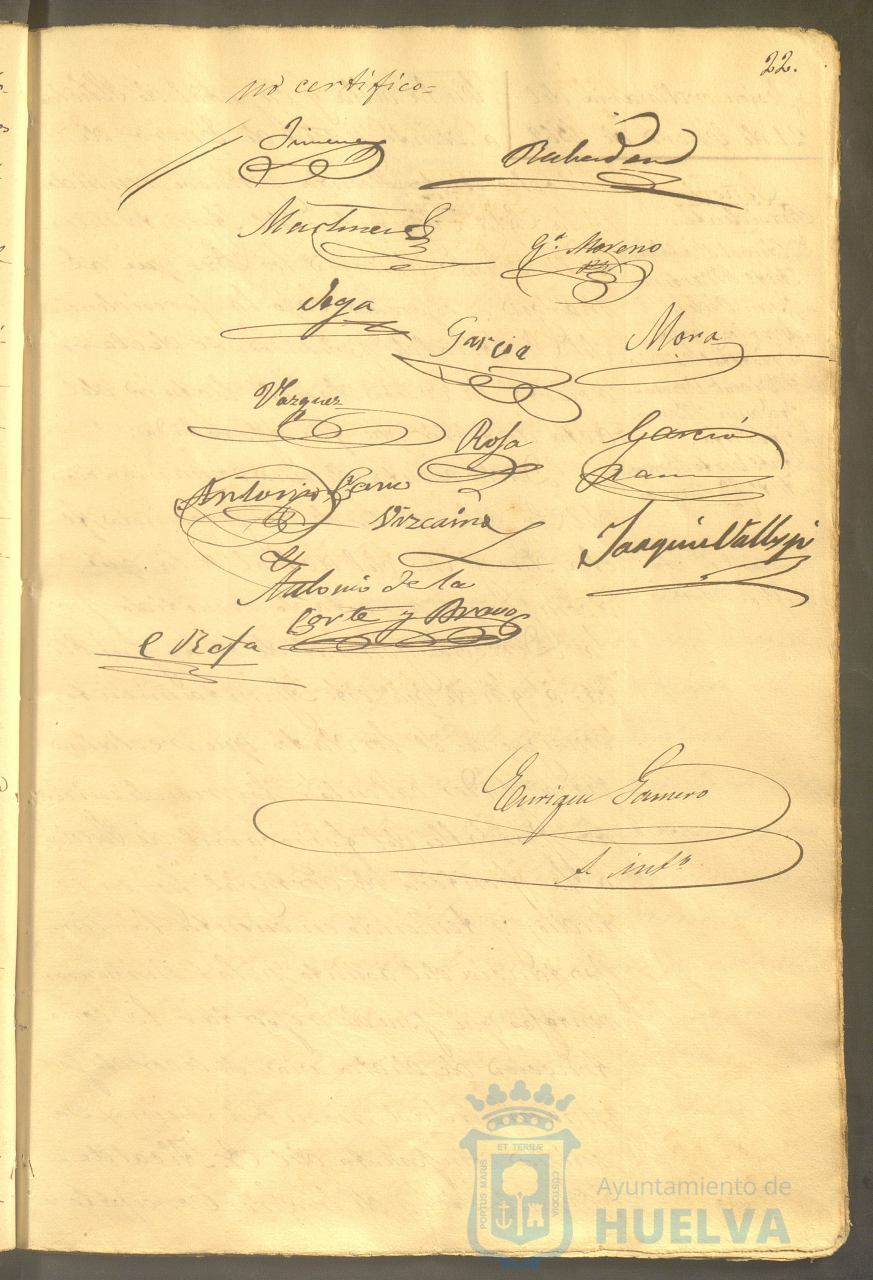 22.
no certifico=
Jimenez
Martinez
Ga. Moreno
Vega
Garcia
Mora
Vazquez
Rosa
Garcia
Antonio Cano
Vizcaino
Joaquin Vallespi
Antonio de la
Corte y Bravo
C Rofa
Enrique Gamero
S. intº
ET TERRÆ
PORTUS MARIS
CUSTODIA
Ayuntamiento de
HUELVA